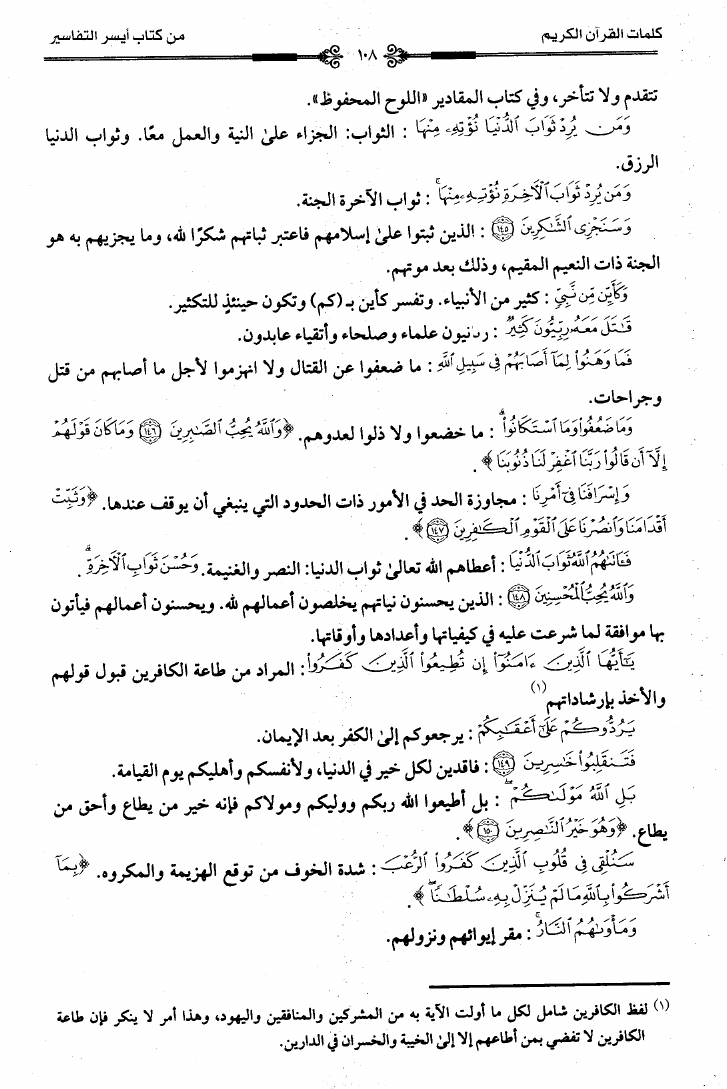 كلمات القرآن الكريم ١٠٨ من كتاب أيسر التفاسير
تتقدم ولا تتأخر، وفي كتاب المقادير «اللوح المحفوظ».
وَمَن يُرِدْ ثَوَابَ الدُّنْيَا نُؤْتِهِ مِنْهَا : الثواب: الجزاء على النية والعمل معًا. وثواب الدنيا
الرزق.
وَمَن يُرِدْ ثَوَابَ الْآخِرَةِ نُؤْتِهِ مِنْهَا : ثواب الآخرة الجنة.
وَسَنَجْزِي الشَّاكِرِينَ ﴿١٤٥﴾ : الذين ثبتوا على إسلامهم فاعتبر ثباتهم شكرًا لله، وما يجزيهم به هو
الجنة ذات النعيم المقيم، وذلك بعد موتهم.
وَكَأَيِّن مِّن نَّبِيٍّ : كثير من الأنبياء. وتفسر كأين بـ (كم) وتكون حينئذٍ للتكثير.
قَاتَلَ مَعَهُ رِبِّيُّونَ كَثِيرٌ : ربانيون علماء وصلحاء وأتقياء عابدون.
فَمَا وَهَنُوا لِمَا أَصَابَهُمْ فِي سَبِيلِ اللَّهِ : ما ضعفوا عن القتال ولا انهزموا لأجل ما أصابهم من قتل
وجراحات.
وَمَا ضَعُفُوا وَمَا اسْتَكَانُوا : ما خضعوا ولا ذلوا لعدوهم. ﴿وَاللَّهُ يُحِبُّ الصَّابِرِينَ ﴿١٤٦﴾ وَمَا كَانَ قَوْلَهُمْ
إِلَّا أَن قَالُوا رَبَّنَا اغْفِرْ لَنَا ذُنُوبَنَا﴾ .
وَإِسْرَافَنَا فِي أَمْرِنَا : مجاوزة الحد في الأمور ذات الحدود التي ينبغي أن يوقف عندها. ﴿وَثَبِّتْ
أَقْدَامَنَا وَانصُرْنَا عَلَى الْقَوْمِ الْكَافِرِينَ ﴿١٤٧﴾﴾ .
فَآتَاهُمُ اللَّهُ ثَوَابَ الدُّنْيَا : أعطاهم الله تعالى ثواب الدنيا: النصر والغنيمة. وَحُسْنَ ثَوَابِ الْآخِرَةِ .
وَاللَّهُ يُحِبُّ الْمُحْسِنِينَ ﴿١٤٨﴾ : الذين يحسنون نياتهم يخلصون أعمالهم لله. ويحسنون أعمالهم فيأتون
بها موافقة لما شرعت عليه في كيفياتها وأعدادها وأوقاتها.
يَا أَيُّهَا الَّذِينَ آمَنُوا إِن تُطِيعُوا الَّذِينَ كَفَرُوا : المراد من طاعة الكافرين قبول قولهم
والأخذ بإرشاداتهم (١)
يَرُدُّوكُمْ عَلَى أَعْقَابِكُمْ : يرجعوكم إلى الكفر بعد الإيمان.
فَتَنقَلِبُوا خَاسِرِينَ ﴿١٤٩﴾ : فاقدين لكل خير في الدنيا، ولأنفسكم وأهليكم يوم القيامة.
بَلِ اللَّهُ مَوْلَاكُمْ : بل أطيعوا الله ربكم ووليكم ومولاكم فإنه خير من يطاع وأحق من
يطاع. ﴿وَهُوَ خَيْرُ النَّاصِرِينَ ﴿١٥٠﴾﴾ .
سَنُلْقِي فِي قُلُوبِ الَّذِينَ كَفَرُوا الرُّعْبَ : شدة الخوف من توقع الهزيمة والمكروه. ﴿بِمَا
أَشْرَكُوا بِاللَّهِ مَا لَمْ يُنَزِّلْ بِهِ سُلْطَانًا﴾ .
وَمَأْوَاهُمُ النَّارُ : مقر إيوائهم ونزولهم.
(١) لفظ الكافرين شامل لكل ما أولت الآية به من المشركين والمنافقين واليهود، وهذا أمر لا ينكر فإن طاعة
الكافرين لا تفضي بمن أطاعهم إلا إلى الخيبة والخسران في الدارين.